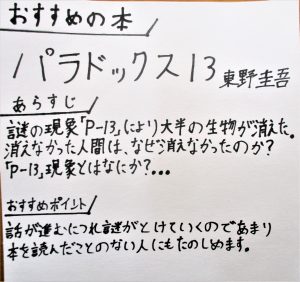 おすすめの本
パラドックス13 東野圭吾
あらすじ
謎の現象「P-13」により大半の生物が消えた。
消えなかった人間は、なぜ消えなかったのか?
「P-13」現象とはなにか?...
おすすめポイント
話が進むにつれ謎がとけていくのであまり
本を読んだことのない人にもたのしめます。